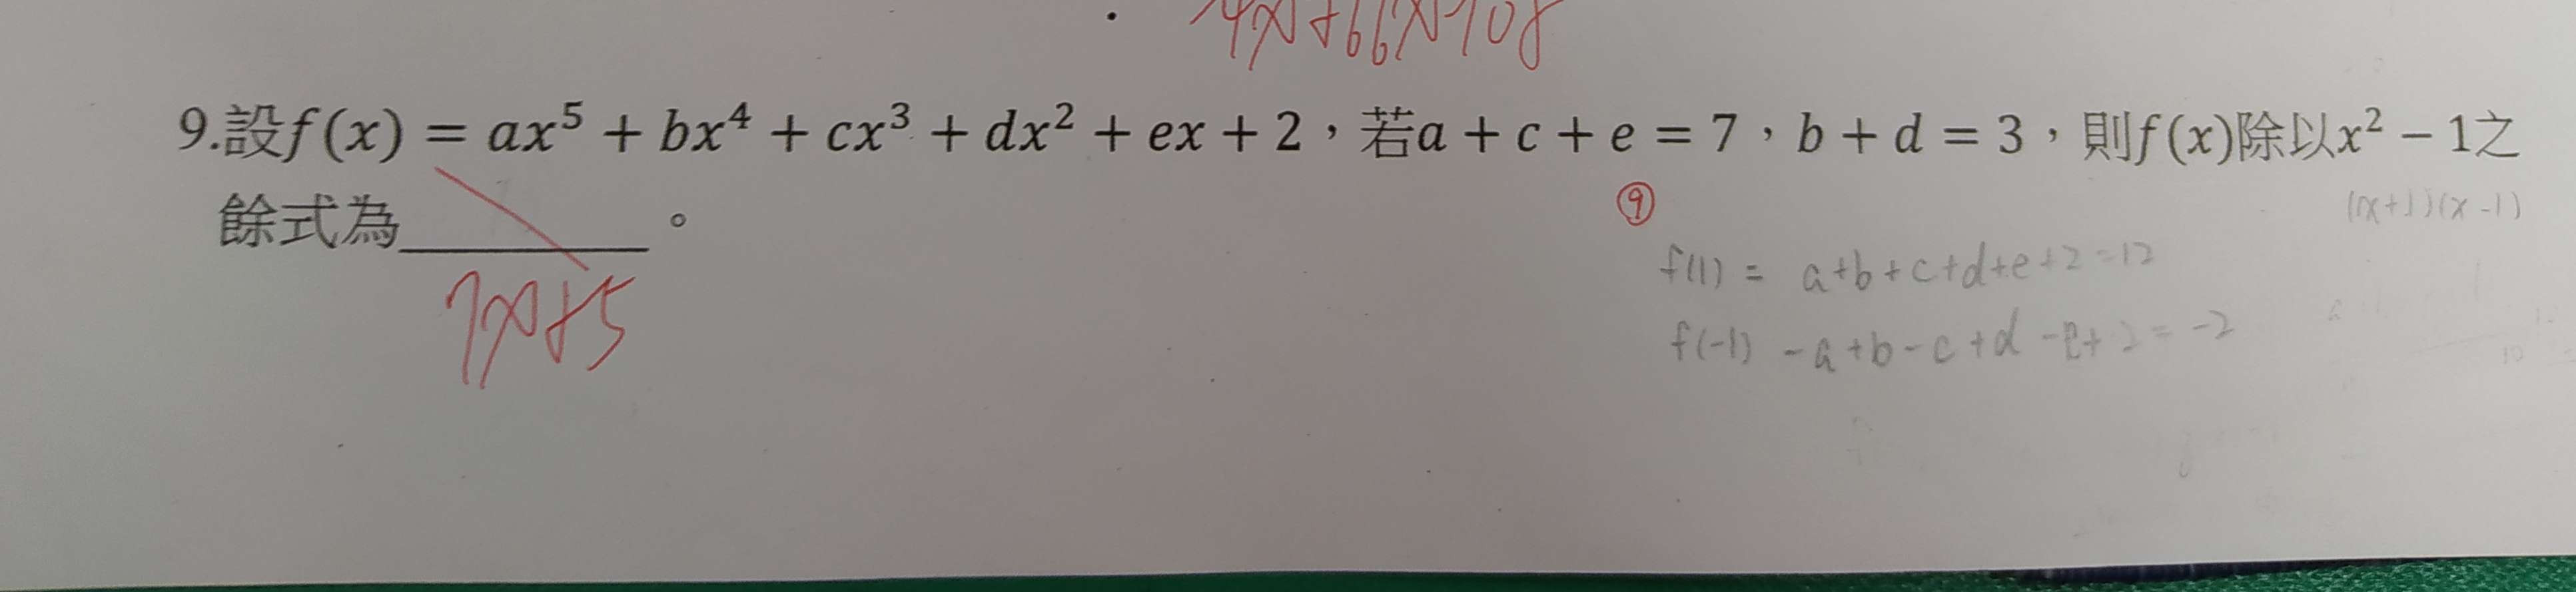 4x²+66x-108
9.設f(x) = ax⁵ + bx⁴ + cx³ + dx² + ex + 2,若a + c + e = 7,b + d = 3,則f(x)除以x² − 1之
(x+1)(x-1)
餘式為________。
⑨
7x+5
f(1) = a+b+c+d+e+2=12
f(-1) -a+b-c+d-e+2=-2